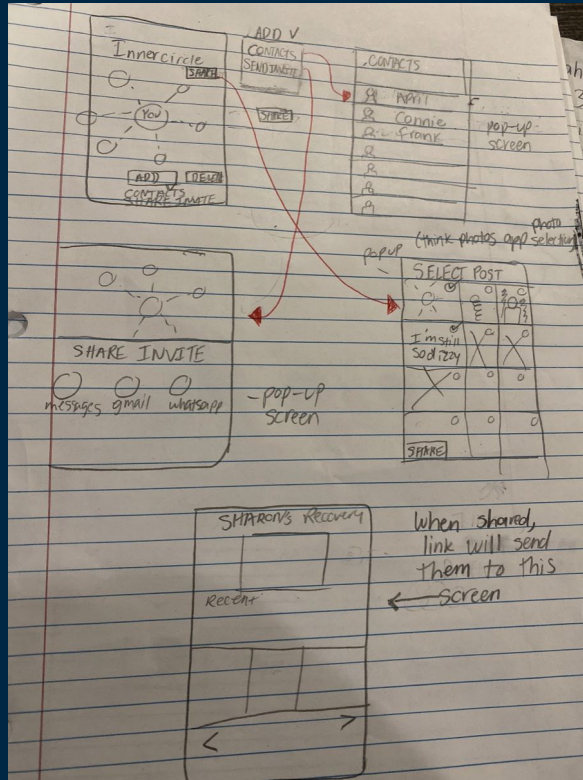 Innercircle
SHARE
YOU
ADD
DELETE
CONTACTS
SHARE INVITE
ADD V
CONTACTS
SEND INVITE
SHARE
CONTACTS
April
Connie
Frank
pop-up
screen
photo
(think photos app selection)
popup
SELECT POST
I'm still
so dizzy
SHARE
SHARE INVITE
messages gmail whatsapp
- pop-up
screen
SHARON's Recovery
Recent
When shared,
link will send
them to this
screen